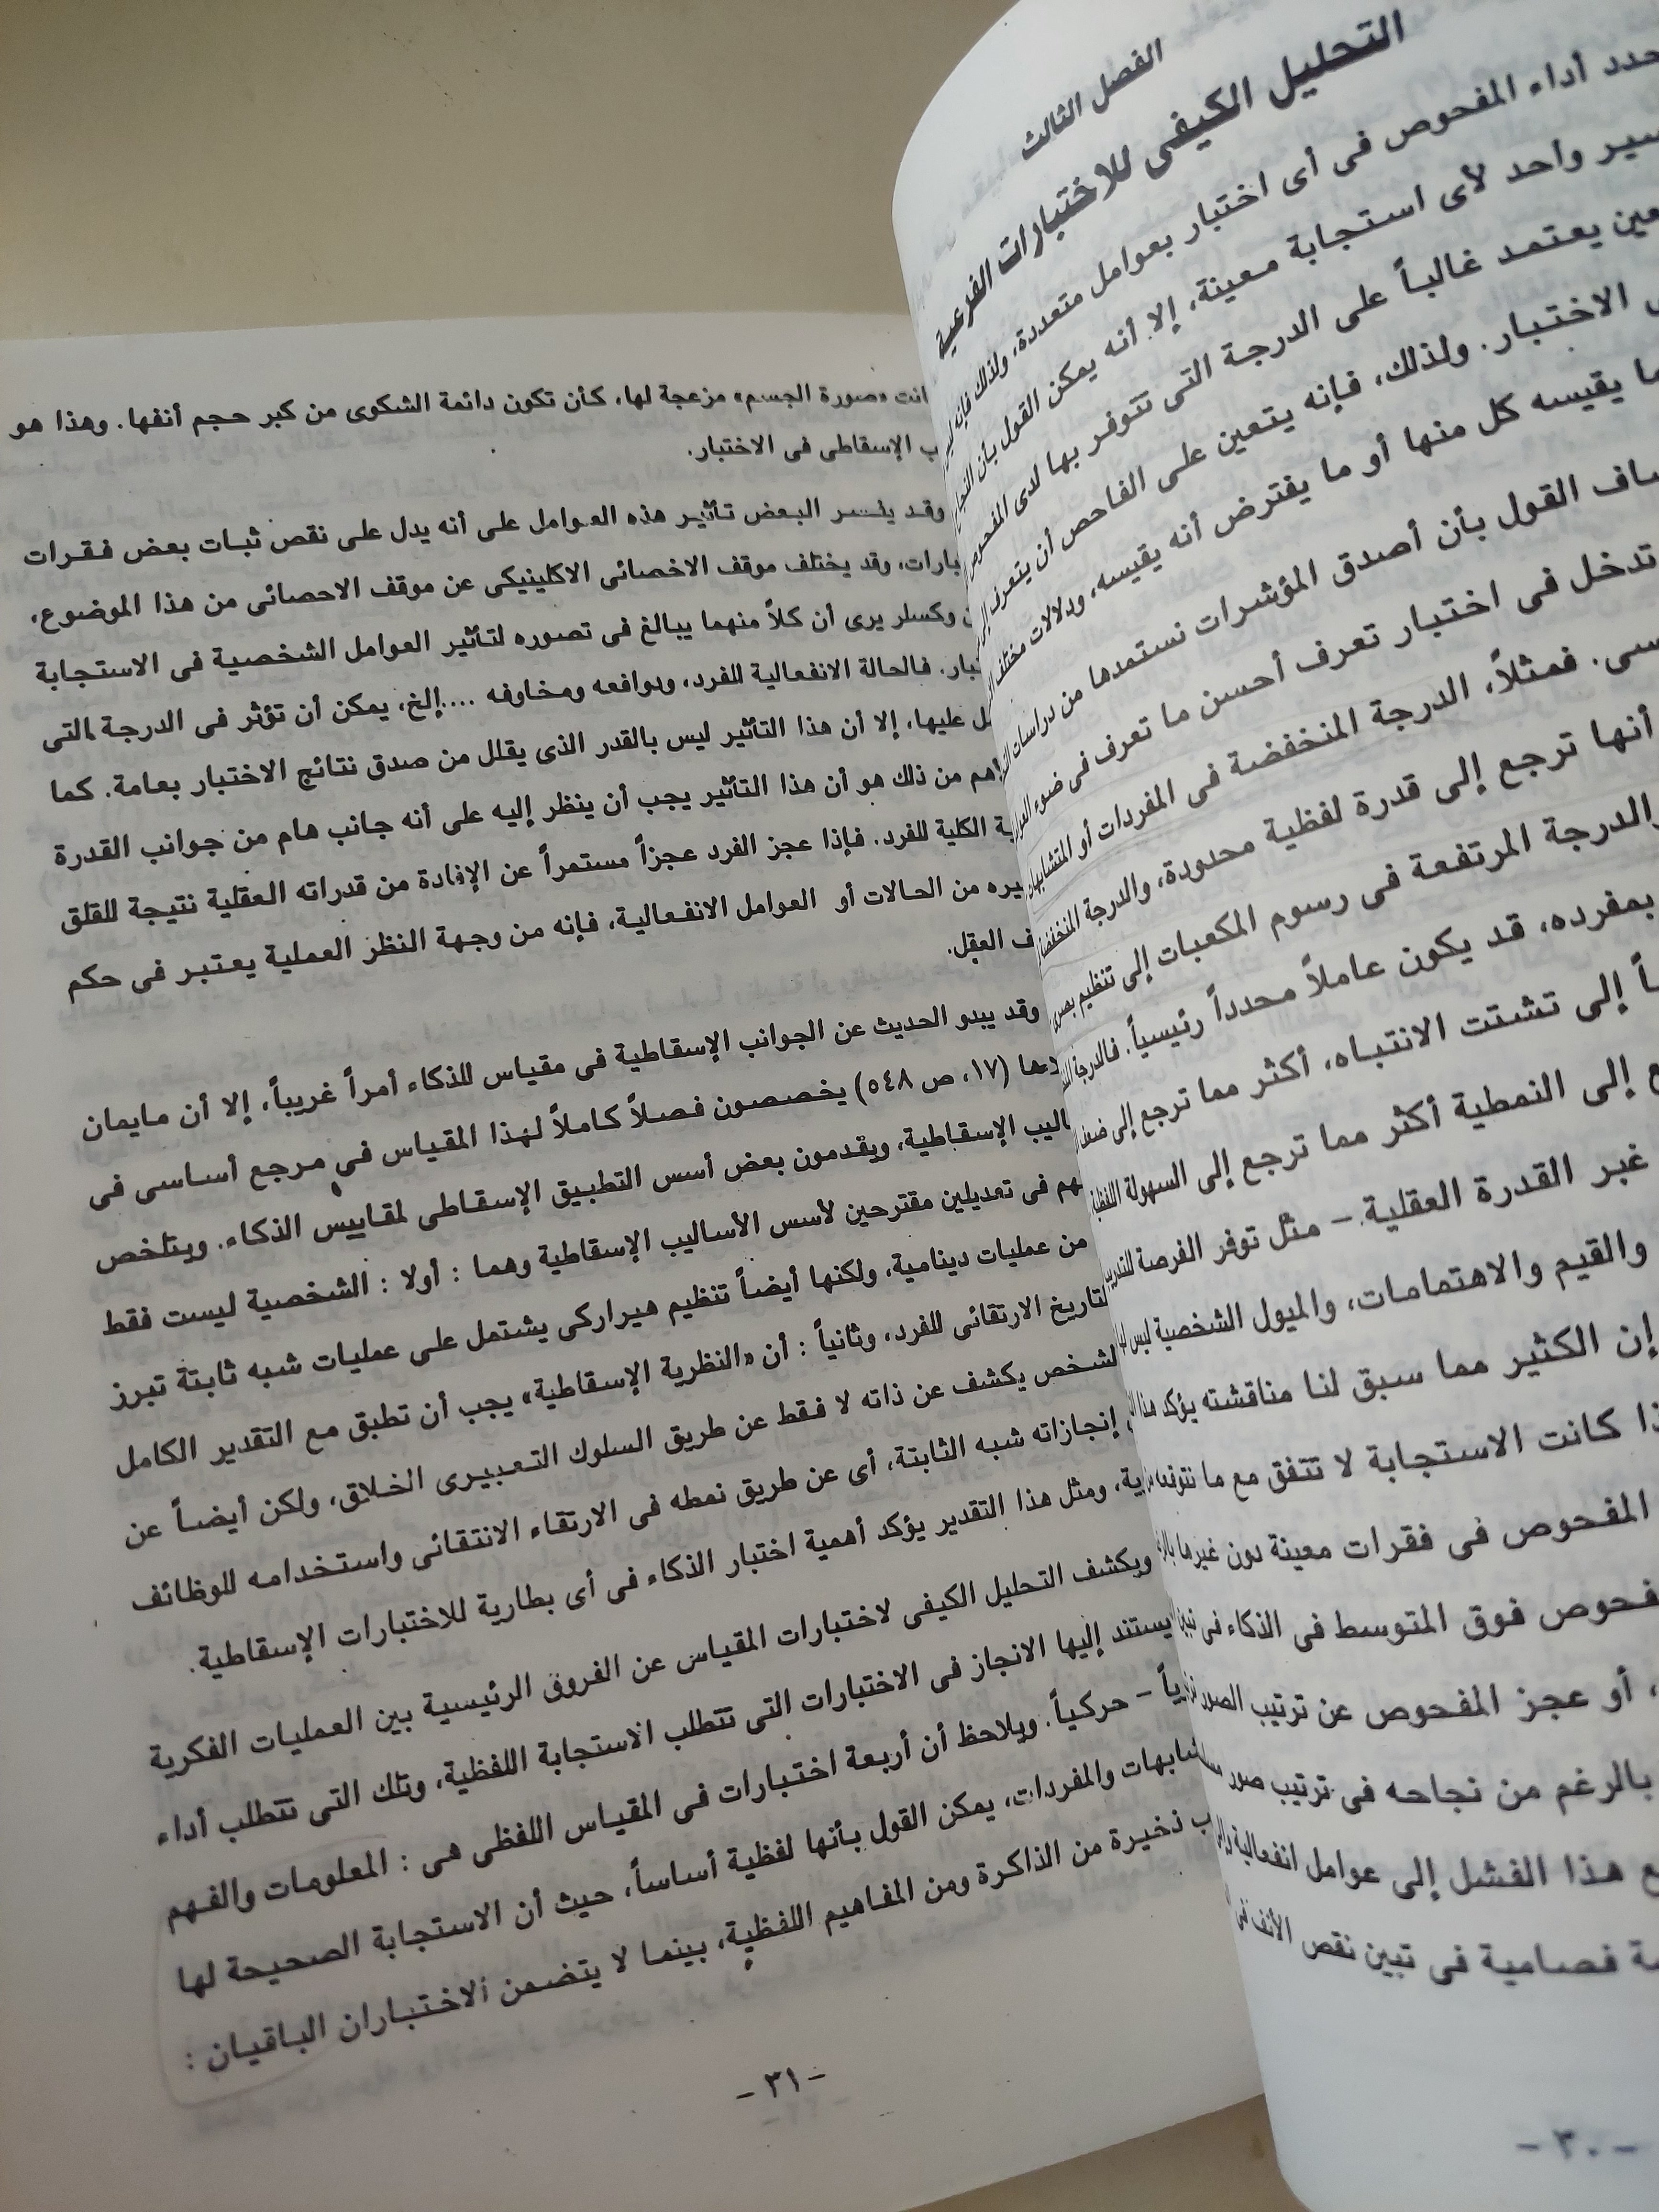 الفصل الثالث
التحليل الكيفى للاختبارات الفرعية
حدد أداء المفحوص فى أى اختبار بعوامل متعددة، ولذلك فإنه
سير واحد لأى استجابة معينة، إلا أنه يمكن القول بأن النجاح
يعتمد غالباً على الدرجة التى تتوفر بها لدى المفحوص
الاختبار. ولذلك، فإنه يتعين على الفاحص أن يتعرف
ما يقيسه كل منها أو ما يفترض أنه يقيسه، ودلالات
القول بأن أصدق المؤشرات نستمدها من دراسات
تدخل فى اختبار تعرف أحسن ما تعرف فى ضوء
فمثلاً، الدرجة المنخفضة فى المفردات أو المتشابهات
أنها ترجع إلى قدرة لفظية محدودة، والدرجة
والدرجة المرتفعة فى رسوم المكعبات إلى تنظيم بصرى
بمفرده، قد يكون عاملاً محدداً رئيسياً. فالدرجة
إلى تشتت الانتباه، أكثر مما ترجع إلى ضعف
إلى النمطية أكثر مما ترجع إلى السهولة اللفظية
غير القدرة العقلية - مثل توفر الفرصة
والقيم والاهتمامات، والميول الشخصية ليس لها
إن الكثير مما سبق لنا مناقشته يؤكد هذا
كانت الاستجابة لا تتفق مع ما نتوقعه
المفحوص فى فقرات معينة دون غيرها
فوق المتوسط فى الذكاء فى
، أو عجز المفحوص عن ترتيب الصور
بالرغم من نجاحه فى ترتيب صور
هذا الفشل إلى عوامل انفعالية
فصامية فى تبين نقص الأنف فى
- ٣٠ -
انت «صورة الجسم» مزعجة لها، كأن تكون دائمة الشكوى من كبر حجم أنفها. وهذا هو
ب الإسقاطى فى الاختبار.
وقد يفسر البعض تأثير هذه العوامل على أنه يدل على نقص ثبات بعض فقرات
بارات، وقد يختلف موقف الاخصائى الاكلينيكى عن موقف الاحصائى من هذا الموضوع،
وكسلر يرى أن كلاً منهما يبالغ فى تصوره لتأثير العوامل الشخصية فى الاستجابة
تبار. فالحالة الانفعالية للفرد، ودوافعه ومخاوفه ....إلخ، يمكن أن تؤثر فى الدرجة التى
ل عليها، إلا أن هذا التأثير ليس بالقدر الذى يقلل من صدق نتائج الاختبار بعامة. كما
هم من ذلك هو أن هذا التأثير يجب أن ينظر إليه على أنه جانب هام من جوانب القدرة
ية الكلية للفرد. فإذا عجز الفرد عجزاً مستمراً عن الإفادة من قدراته العقلية نتيجة للقلق
يره من الحالات أو العوامل الانفعالية، فإنه من وجهة النظر العملية يعتبر فى حكم
ف العقل.
وقد يبدو الحديث عن الجوانب الإسقاطية فى مقياس للذكاء أمراً غريباً، إلا أن مايمان
دها (١٧، ص ٥٤٨) يخصصون فصلاً كاملاً لهذا المقياس فى مرجع أساسى فى
اليب الإسقاطية، ويقدمون بعض أسس التطبيق الإسقاطى لمقاييس الذكاء. ويتلخص
هم فى تعديلين مقترحين لأسس الأساليب الإسقاطية وهما : أولا : الشخصية ليست فقط
من عمليات دينامية، ولكنها أيضاً تنظيم هيراركى يشتمل على عمليات شبه ثابتة تبرز
لتاريخ الارتقائى للفرد، وثانياً : أن «النظرية الإسقاطية» يجب أن تطبق مع التقدير الكامل
لشخص يكشف عن ذاته لا فقط عن طريق السلوك التعبيرى الخلاق، ولكن أيضاً عن
إنجازاته شبه الثابتة، أى عن طريق نمطه فى الارتقاء الانتقائى واستخدامه للوظائف
ية، ومثل هذا التقدير يؤكد أهمية اختبار الذكاء فى أى بطارية للاختبارات الإسقاطية.
ويكشف التحليل الكيفى لاختبارات المقياس عن الفروق الرئيسية بين العمليات الفكرية
يستند إليها الانجاز فى الاختبارات التى تتطلب الاستجابة اللفظية، وتلك التى تتطلب أداء
ياً - حركياً. ويلاحظ أن أربعة اختبارات فى المقياس اللفظى هى : المعلومات والفهم
شابهات والمفردات، يمكن القول بأنها لفظية أساساً، حيث أن الاستجابة الصحيحة لها
ب ذخيرة من الذاكرة ومن المفاهيم اللفظية، بينما لا يتضمن الاختباران الباقيان :
- ٣١ -